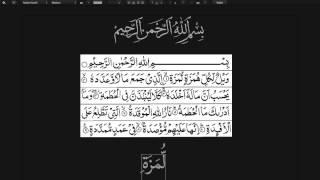 بِسْمِ اللَّهِ الرَّحْمَٰنِ الرَّحِيمِ
بِسْمِ اللَّهِ الرَّحْمَٰنِ الرَّحِيمِ
وَيْلٌ لِكُلِّ هُمَزَةٍ لُمَزَةٍ الَّذِي جَمَعَ مَالًا وَعَدَّدَهُ
يَحْسَبُ أَنَّ مَالَهُ أَخْلَدَهُ كَلَّا لَيُنْبَذَنَّ فِي الْحُطَمَةِ وَمَا
أَدْرَاكَ مَا الْحُطَمَةُ نَارُ اللَّهِ الْمُوقَدَةُ الَّتِي تَطَّلِعُ عَلَى
الْأَفْئِدَةِ إِنَّهَا عَلَيْهِمْ مُؤْصَدَةٌ فِي عَمَدٍ مُمَدَّدَةٍ
لُمَزَةٍ